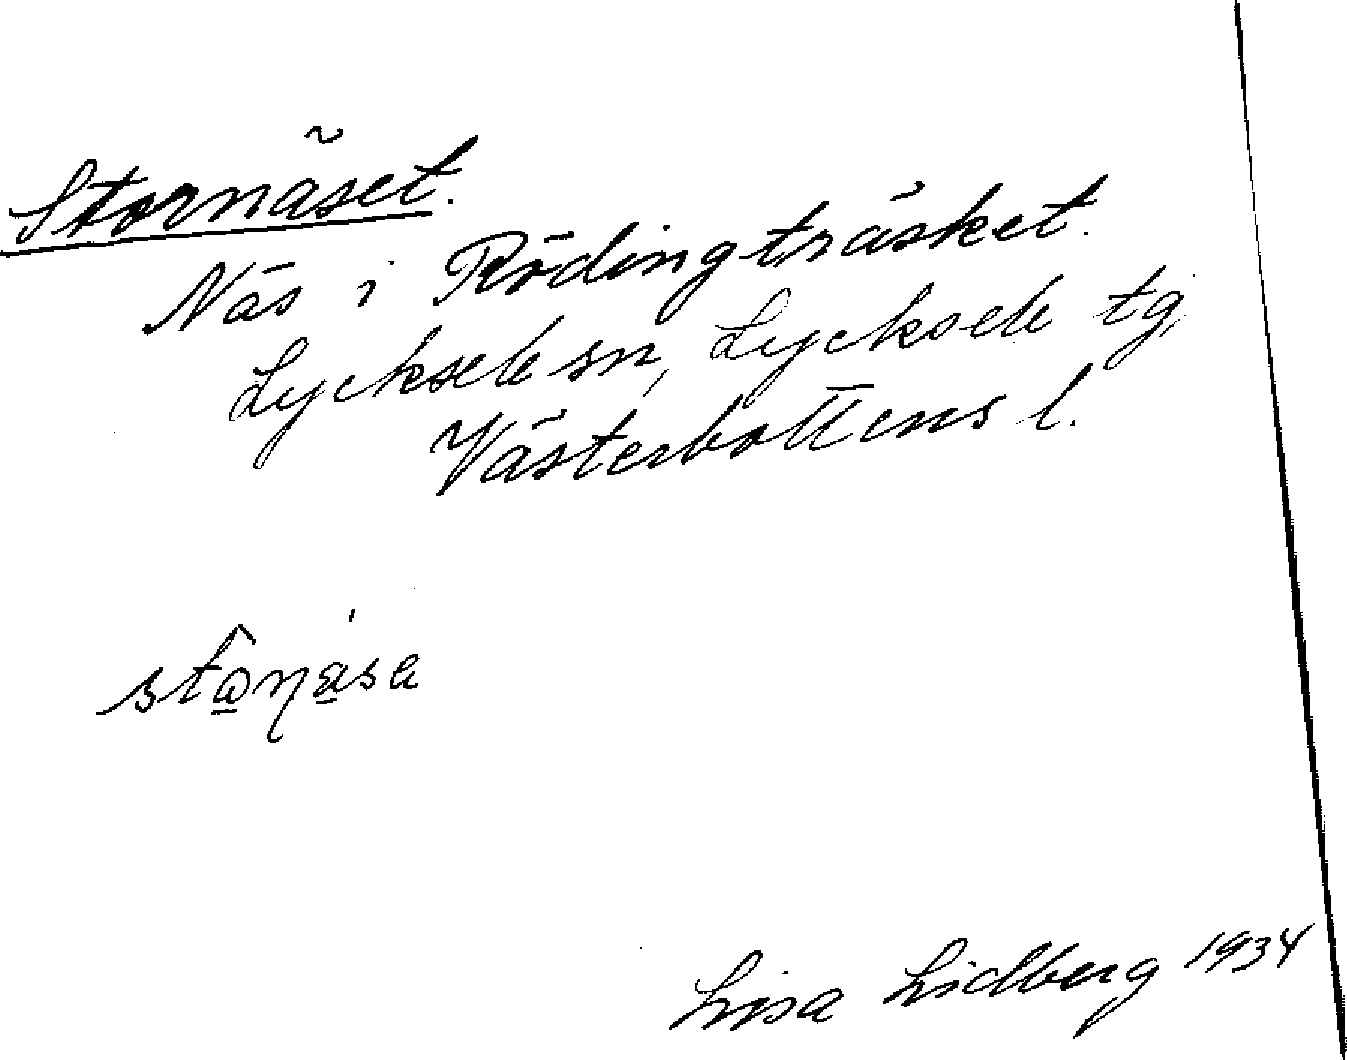 Stornäset.
Näs i Rödingträsket.
Lycksele sn, Lycksele tg,
Västerbottens l.
Lisa Lidberg 1934